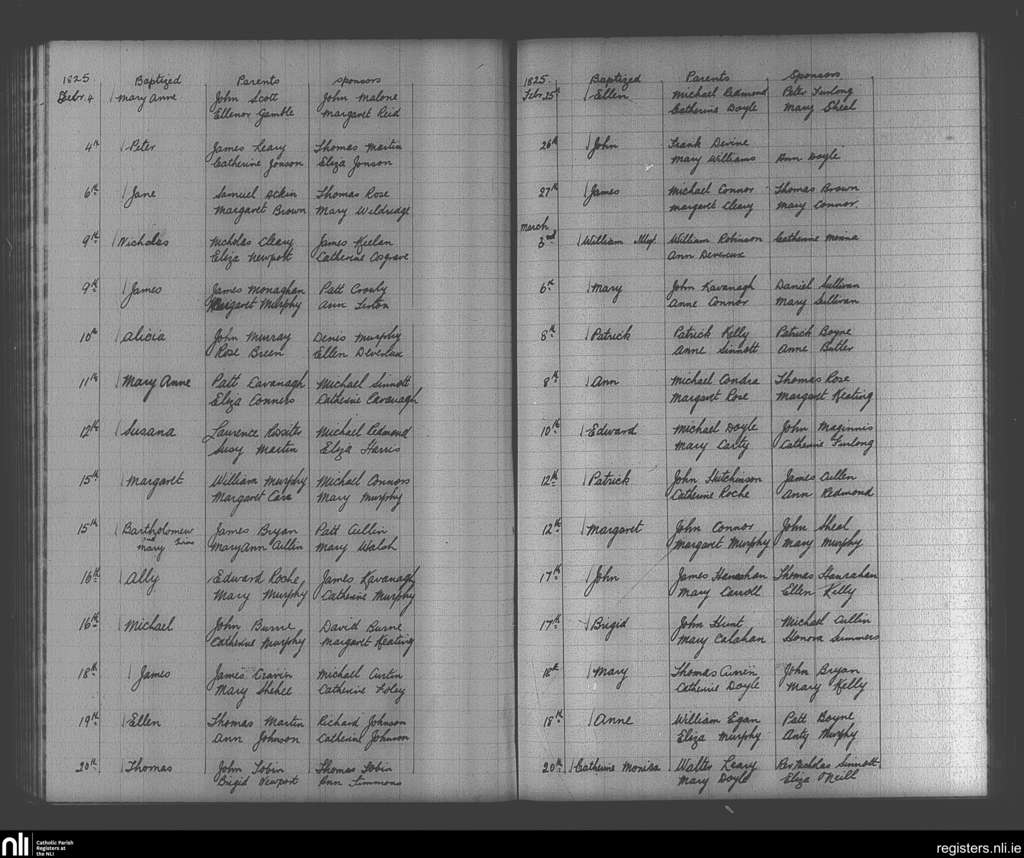 1825
Baptized Parents Sponsors
Febr. 4 Mary Anne John Scott John Malone
Ellenor Gamble Margaret Reid
4th Peter James Leary Thomas Martin
Catherine Jonson Eliza Jonson
6th Jane Samuel Atkin Thomas Rose
Margaret Brown Mary Weldridge
9th Nicholas Nicholas Cleary James Keelan
Eliza Newport Catherine Cosgrave
9th James James Monaghan Patt Crosby
Margaret Murphy Ann Finton
10th Alicia John Murray Denis Murphy
Rose Breen Ellen Deverlax
11th Mary Anne Patt Cavanagh Michael Sinnott
Eliza Conners Catherine Cavanagh
12th Susana Laurence Rositer Michael Redmond
Susy Martin Eliza Harris
15th Margaret William Murphy Michael Connors
Margaret Cara Mary Murphy
15th Bartholomew James Bryan Patt Cullin
and Mary Twins Mary Ann Cullin Mary Walsh
16th Ally Edward Roche James Kavanagh
Mary Murphy Catherine Murphy
16th Michael John Burne David Burne
Catherine Murphy Margaret Keating
18th James James Cravin Michael Curtin
Mary Shehee Catherine Foley
19th Ellen Thomas Martin Richard Johnson
Ann Johnson Catherine Johnson
20th Thomas John Tobin Thomas Tobin
Brigid Newport Ann Timmons
1825.
Baptized Parents Sponsors
Febr. 25th Ellen Michael Redmond Peter Furlong
Catherine Doyle Mary Sheal
26th John Frank Devine
Mary Williams Ann Doyle
27th James Michael Connor Thomas Brown
Margaret Cleary Mary Connor.
March
3rd William William Robinson Catherine
Ann Devereux
6th Mary John Kavanagh Daniel Sullivan
Anne Connor Mary Sullivan
8th Patrick Patrick Kelly Patrick Boyne
Anne Sinnott Anne Butler
8th Ann Michael Condra Thomas Rose
Margaret Rose Margaret Keating
10th Edward Michael Doyle John Maginnis
Mary Carty Catherine Furlong
12th Patrick John Hutchinson James Cullen
Catherine Roche Ann Redmond
12th Margaret John Connor John Sheal
Margaret Murphy Mary Murphy
17th John James Hanrahan Thomas Hanrahan
Mary Carroll Ellen Kelly
17th Brigid John Hunt Michael Cullin
Mary Calahan Honora Summers
18th Mary Thomas John Bryan
Catherine Doyle Mary Kelly
18th Anne William Egan Patt Boyne
Eliza Murphy Anty Murphy
20th Catherine Monica Walter Leary Rev Nicholas Sinnott
Mary Doyle Eliza O'Neill
nli Catholic Parish
Registers at
the NLI
registers.nli.ie